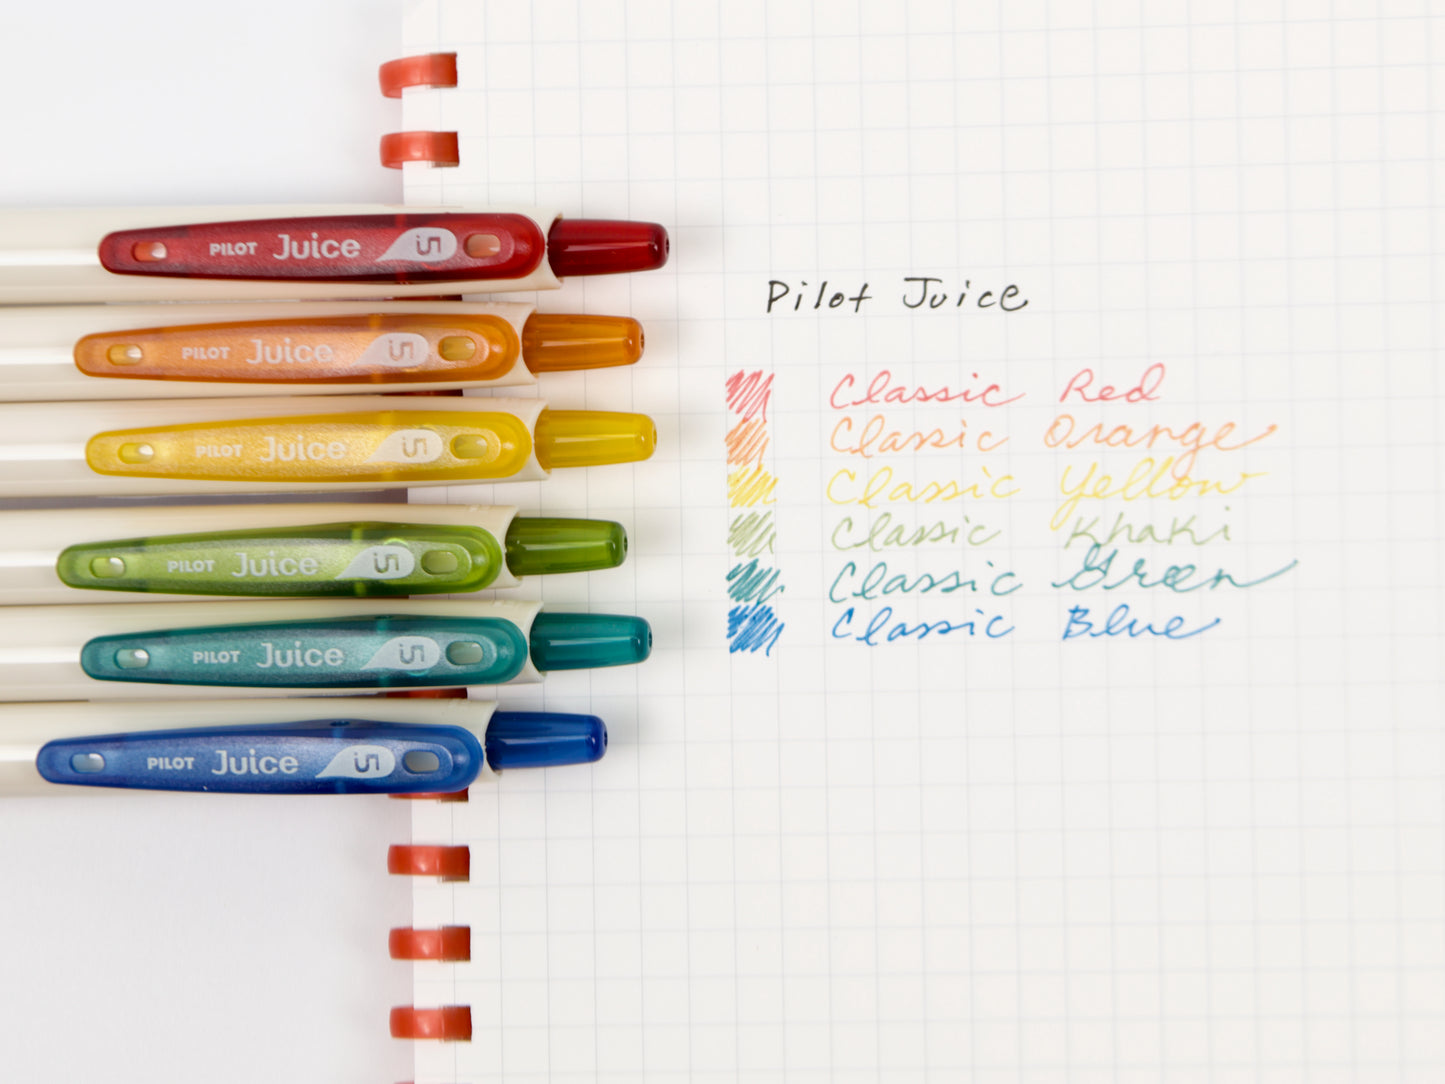 PILOT Juice 5
PILOT Juice 5
PILOT Juice 5
PILOT Juice 5
PILOT Juice 5
PILOT Juice 5
Pilot Juice
Classic Red
Classic Orange
Classic Yellow
Classic Khaki
Classic Green
Classic Blue